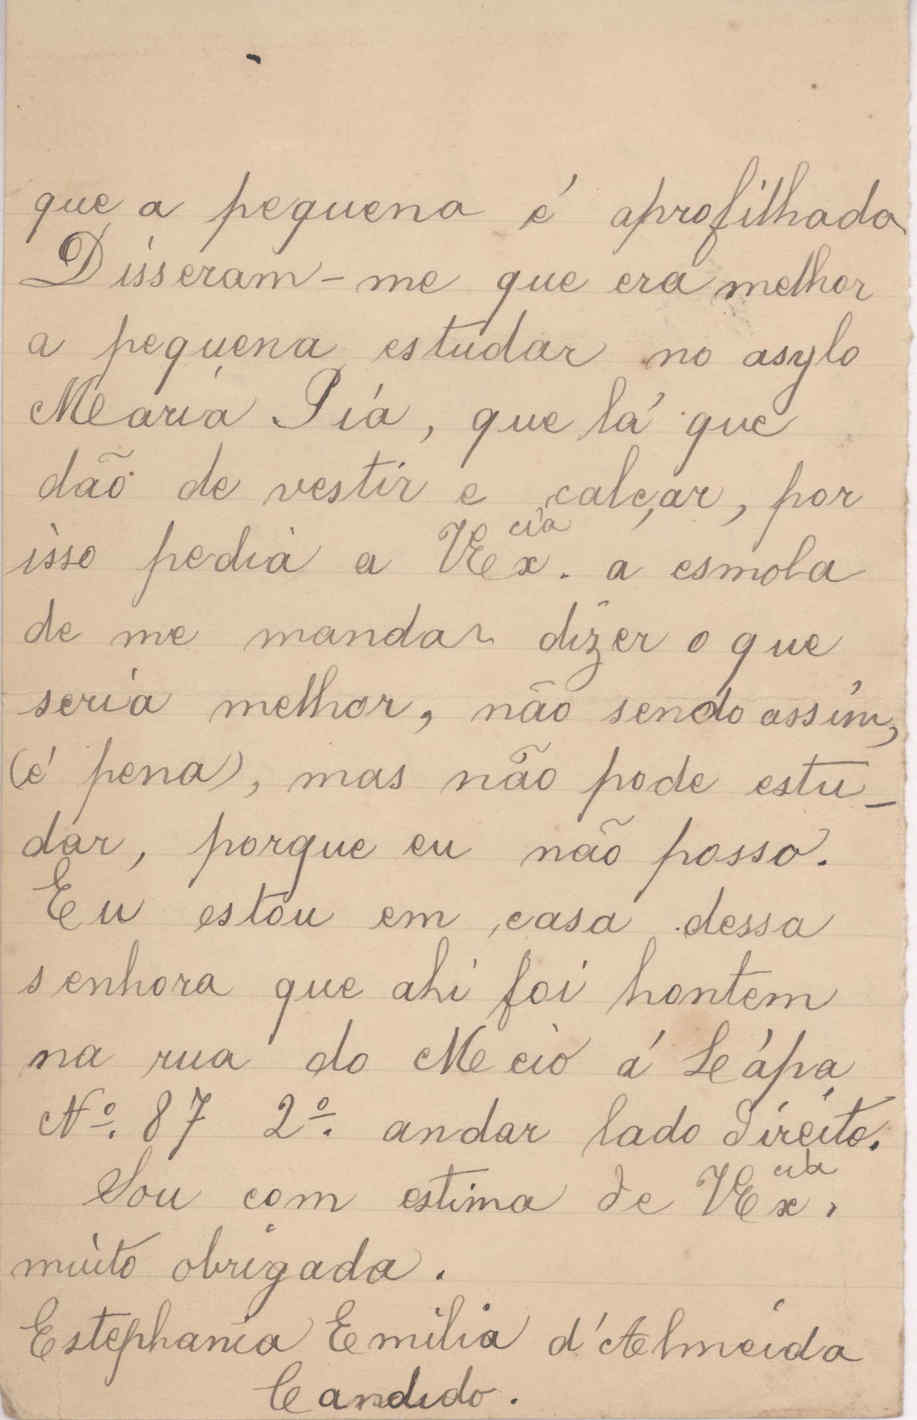 que a pequena é aprofilhada
Disseram-me que era melhor
a pequena estudar no asylo
Maria Pia, que lá que
dão de vestir e calçar, por
isso pedia a VEx.cia a esmola
de me mandar dizer o que
seria melhor, não sendo assim,
(é pena), mas não pode estu-
dar, porque eu não posso.
Eu estou em casa dessa
senhora que ahi foi hontem
na rua do Meio á Lápa
Nº. 87 2º. andar lado direito.
Sou com estima de VEx.cia
muito obrigada.
Estephania Emilia d'Almeida
Candido.